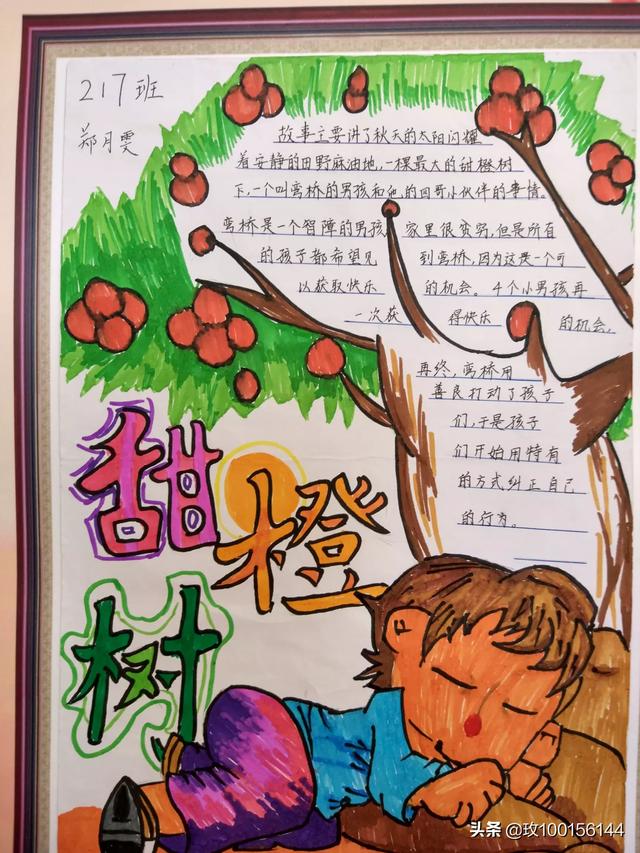 217班
郑月雯
故事主要讲了秋天的太阳闪耀
着安静的田野麻油地,一棵最大的甜橙树
下,一个叫弯桥的男孩和他的四哥小伙伴的事情。
弯桥是一个智障的男孩 家里很贫穷,但是所有
的孩子都希望见 到弯桥,因为这是一个可
以获取快乐 的机会。4个小男孩再
一次获 得快乐 的机会,
再终,弯桥用
善良打动了孩子
们,于是孩子
们开始用特有
的方式纠正自己
的行为。
甜橙树
头条 @玫100156144